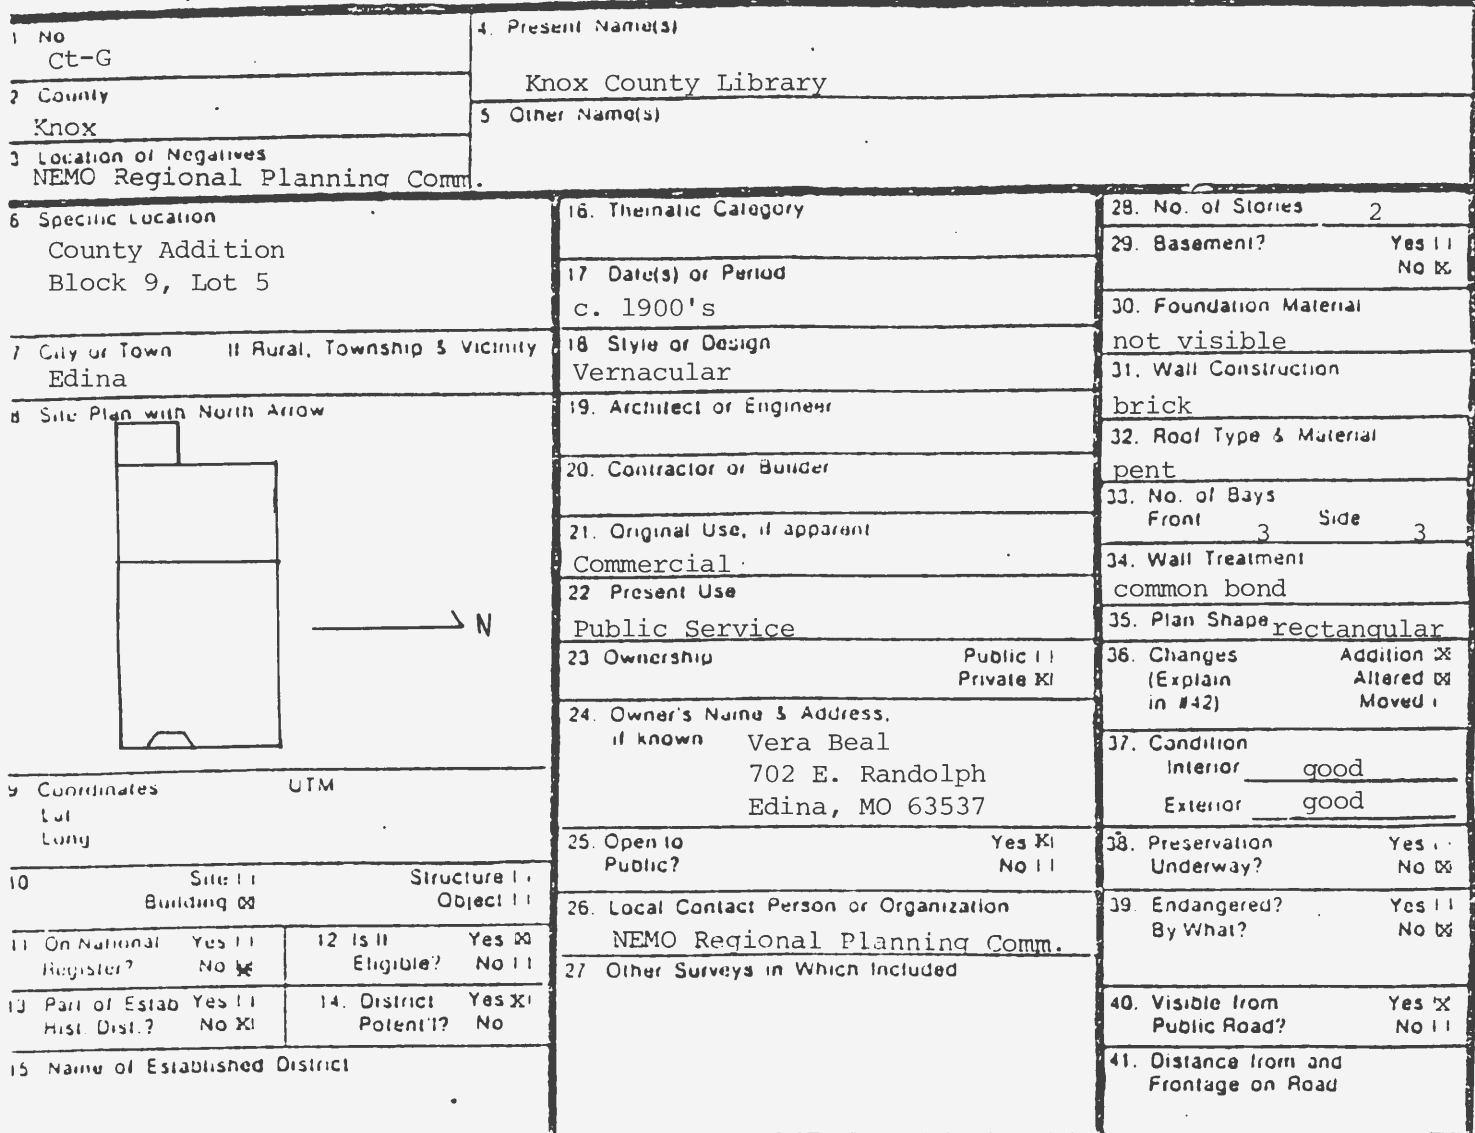 1 No
Ct-G
2 County
Knox
3 Location of Negatives
NEMO Regional Planning Comm.
4. Present Name(s)
Knox County Library
5 Other Name(s)
6 Specific Location
County Addition
Block 9, Lot 5
7 City or Town If Rural, Township & Vicinity
Edina
8 Site Plan with North Arrow
N
9 Coordinates UTM
Lat
Long
10 Site Structure
Building X Object
11 On National Register? Yes No X
12 Is It Eligible? Yes X No
13 Part of Estab Hist. Dist.? Yes No X
14. District Potent'l? Yes X No
15 Name of Established District
16. Thematic Category
17 Date(s) or Period
c. 1900's
18 Style or Design
Vernacular
19. Architect or Engineer
20. Contractor or Builder
21. Original Use, if apparent
Commercial
22 Present Use
Public Service
23 Ownership Public
Private X
24. Owner's Name & Address,
if known Vera Beal
702 E. Randolph
Edina, MO 63537
25. Open to Yes X
Public? No
26. Local Contact Person or Organization
NEMO Regional Planning Comm.
27 Other Surveys in Which Included
28. No. of Stories 2
29. Basement? Yes
No X
30. Foundation Material
not visible
31. Wall Construction
brick
32. Roof Type & Material
pent
33. No. of Bays
Front 3 Side 3
34. Wall Treatment
common bond
35. Plan Shape rectangular
36. Changes Addition X
(Explain Altered X
in #42) Moved
37. Condition
Interior good
Exterior good
38. Preservation Yes
Underway? No X
39. Endangered? Yes
By What? No X
40. Visible from Yes X
Public Road? No
41. Distance from and
Frontage on Road